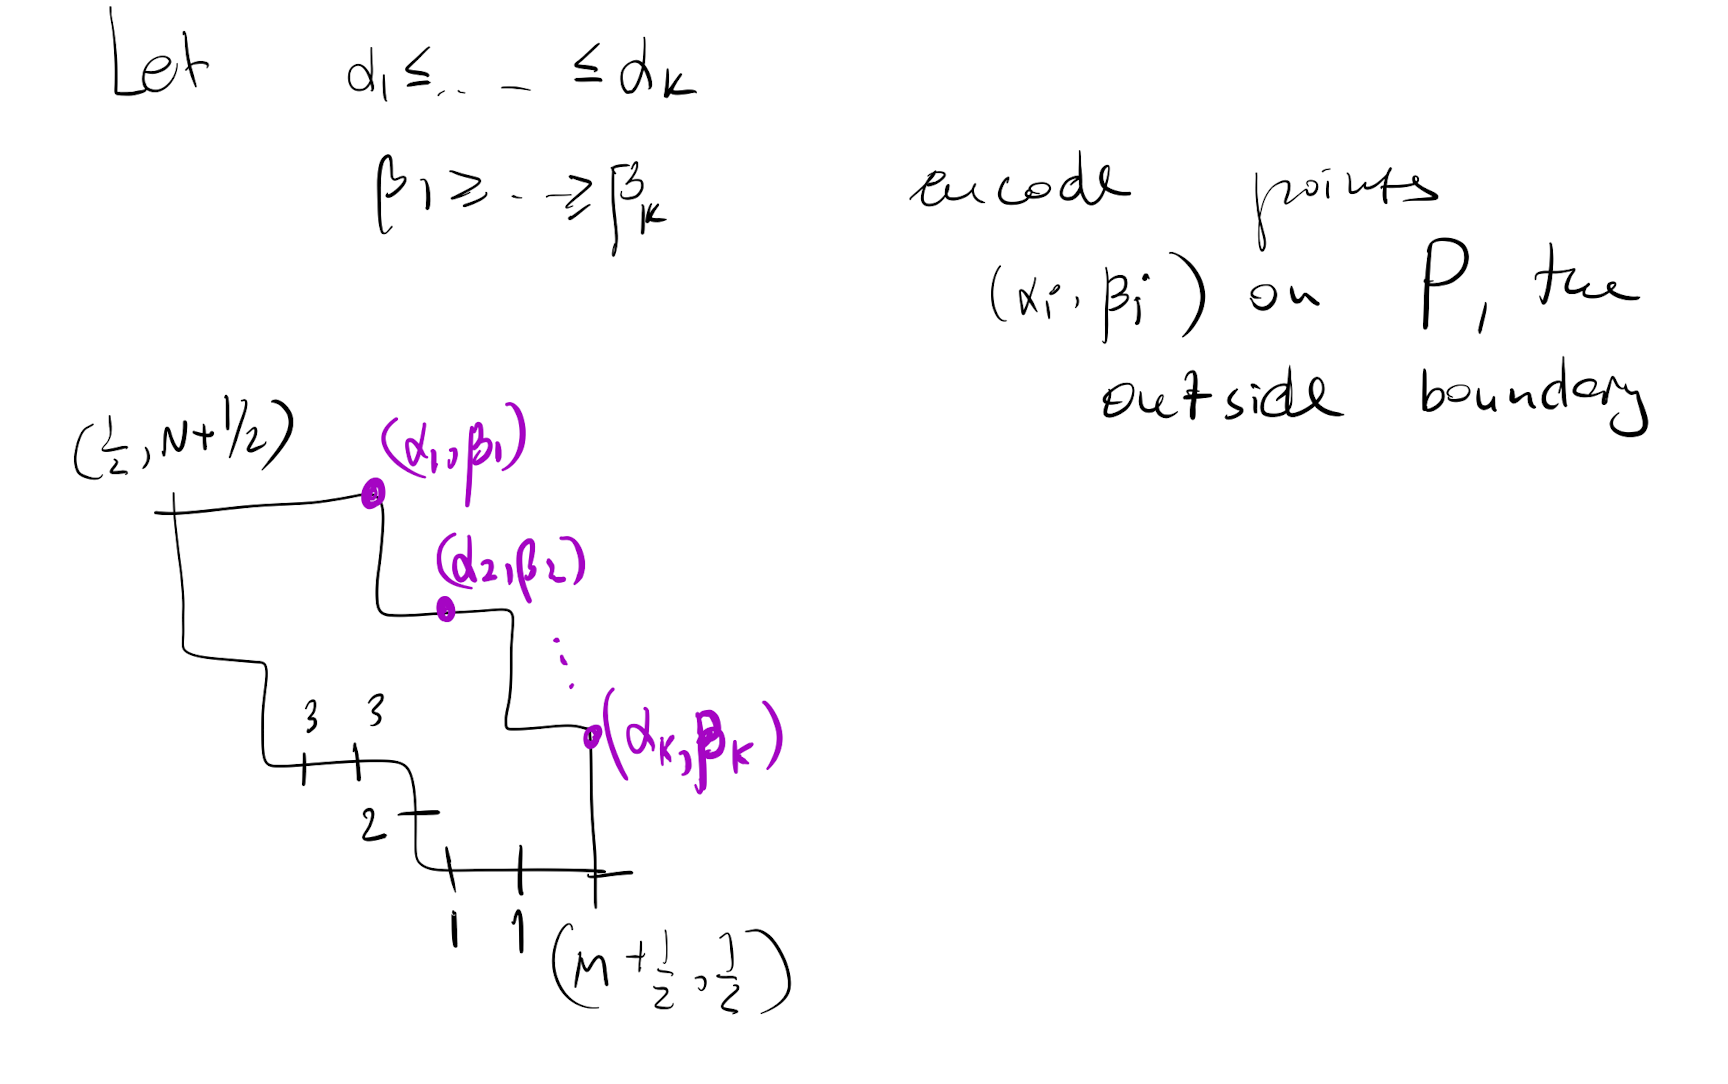 Let α₁ ≤ .. – ≤ αₖ
β₁ ≥ . . ≥ βₖ
encode points
(αᵢ, βᵢ) on P, the
outside boundary
(½, N+1/2)
(α₁, β₁)
(α₂, β₂)
⋮
(αₖ, βₖ)
3 3
2
1 1
(M + ½, ½)